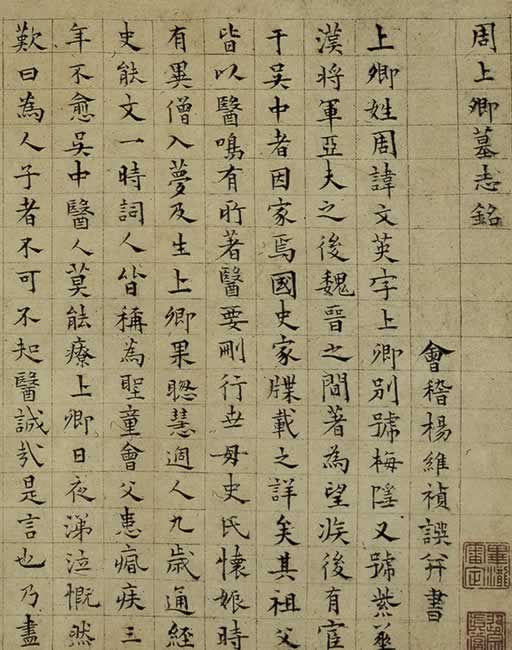 周上卿墓志銘
會稽楊維禎譔并書
上卿姓周諱文英字上卿別號梅隱又號紫
漢將軍亞夫之後魏晉之間著為望族後有宦
于吳中者因家焉國史家牒載之詳矣其祖父
皆以醫鳴有所著醫要刪行世母史氏懷娠時
有異僧入夢及生上卿果聰慧過人九歲通經
史能文一時詞人皆稱為聖童會父患瘋疾三
年不愈吳中醫人莫能療上卿日夜涕泣慨然
歎曰為人子者不可不知醫誠哉是言也乃盡